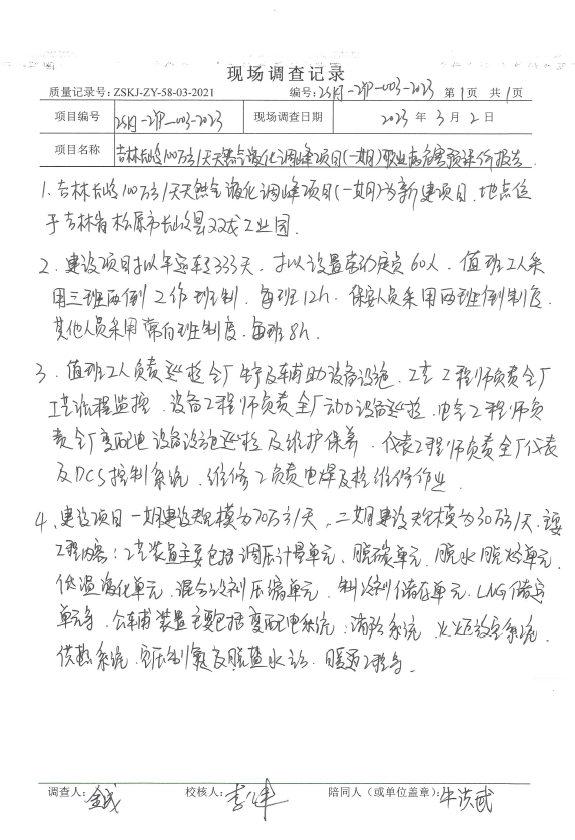 现场调查记录
质量记录号: ZSKJ-ZY-58-03-2021 编号: ZSYJ-ZYP-003-2023 第1页 共1页
项目编号 ZSYJ-ZYP-003-2023 现场调查日期 2023年3月2日
项目名称 吉林长岭100万方/天天然气液化调峰项目(一期)职业病危害预评价报告
1. 吉林长岭100万方/天天然气液化调峰项目(一期)为新建项目,地点位
于吉林省松原市长岭县双龙工业园.
2. 建设项目拟年运转333天, 拟设置劳动定员60人, 值班工人采
用三班两倒工作班制, 每班12h. 保安人员采用两班倒制度,
其他人员采用常白班制度, 每班8h.
3. 值班工人负责巡检全厂生产及辅助设备设施, 工艺工程师负责全厂
工艺流程监控, 设备工程师负责全厂动力设备巡检, 电气工程师负
责全厂变配电设备设施巡检及维护保养, 仪表工程师负责全厂仪表
及DCS控制系统, 维修工负责电焊及检维修作业.
4. 建设项目一期建设规模为70万方/天, 二期建设规模为30万方/天. 主要
工程内容: 工艺装置主要包括调压计量单元、脱碳单元、脱水脱烃单元、
低温液化单元、混合冷剂压缩单元、制冷剂储存单元、LNG储存
单元等. 公辅装置主要包括变配电系统、消防系统、火炬放空系统、
供热系统、空压制氮及脱盐水站、暖通工程等.
调查人: 金成 校核人: 陪同人(或单位盖章): 牛洪武